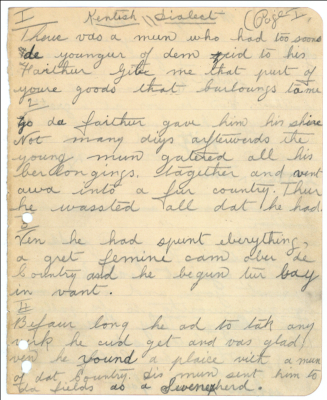 I Kentish Dialect (Page I)
Thour vas a mun who had too soons
de younguer of dem zeid to his
Faithur Give me that purt of
youre goods that burloungs to me
2
Zo da faithur gave him his shire
Not many diys afterwerds the
young mun gatered all his
berlongings, tagether and vent
awa into a fur country. Thur
he wassted all dat he had.
3
Ven he had spunt eberything,
a gret femine cam ober de
Country and he begun tur bay
in vant.
4
Befaur long he ad to tak any
vurk he cud get and vas glad
ven he vound a plaice vith a mun
of dat Country. Dis mun sent him to
fields as a Swineherd.